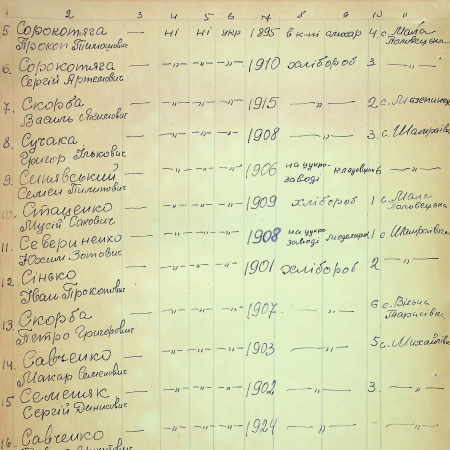 1 2 3 4 5 6 7 8 9 10 11
5 Сорокотяга — ні ні укр 1895 в к-пі слюсар 4 с. Мала
Прокоп Тимошович Половецька
6. Сорокотяга — -"- -"- -"- 1910 хлібороб 3 — " —
Сергій Артемович
7. Скорба — -"- -"- -"- 1915 — " — 2 с.
Василь
8. Сучака — -"- -"- -"- 1908 — " — 3. с. Шамраївка
Григор Ількович
9. Синявський — -"- -"- -"- 1906 на цукро- кладовщик 6 — " —
Семен Пилипович заводі
10. Стаценко — -"- -"- -"- 1909 хлібороб 1 с. Мала
Мусій Савович Половецька
11. Севериненко — -"- -"- -"- 1908 на цукро- 1 с. Шамраївка
Юхим Зотович заводі
12. Сінько — -"- -"- -"- 1901 хлібороб 2 — " —
Іван Прокопович
13. Скорба — -"- -"- -"- 1907 — " — 6 с. Вільна
Петро Григорович Тарасівка
14. Савченко — -"- -"- -"- 1903 — " — 5 с. Михайлівка
Макар Семенович
15 Семеняк — -"- -"- -"- 1902 — " — 3. — " —
Сергій Денисович
16. Савченко — -"- -"- -"- 1924 — " — - — " —